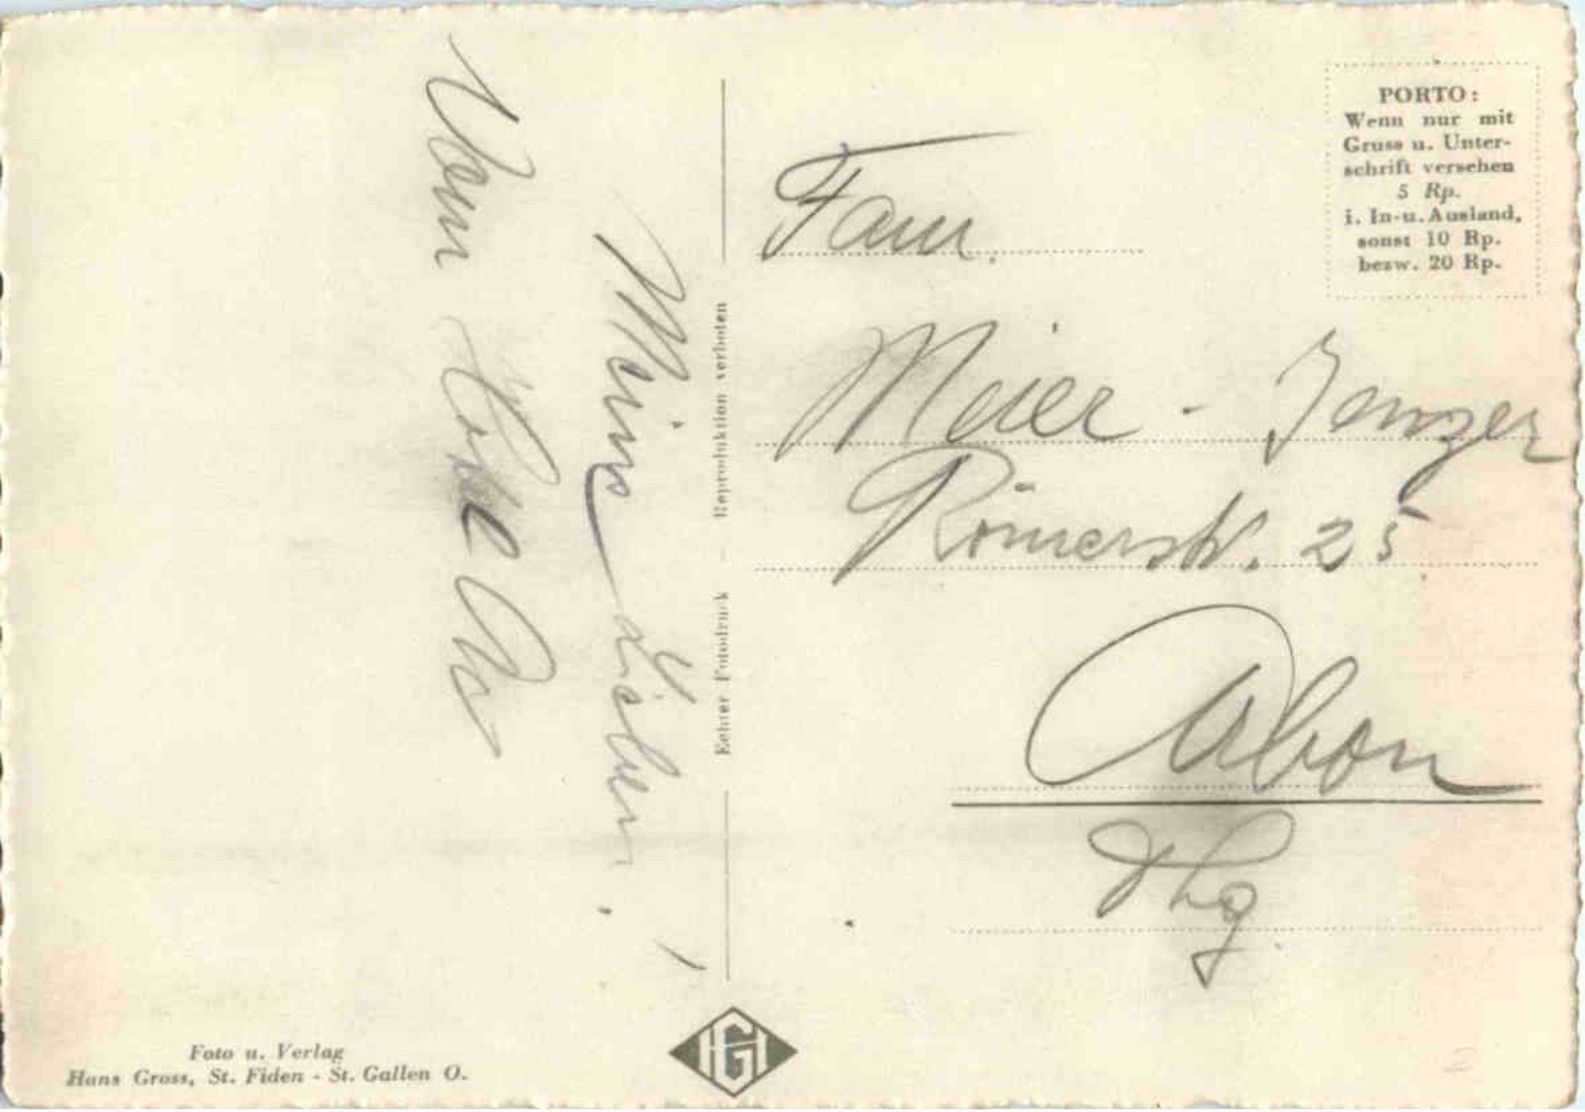 Meine Lieben,
Vom
Reproduktion verboten
Echter Fotodruck
Foto u. Verlag
Hans Gross, St. Fiden - St. Gallen O.
HG
PORTO:
Wenn nur mit
Gruss u. Unter-
schrift versehen
5 Rp.
i. In- u. Ausland,
sonst 10 Rp.
bezw. 20 Rp.
Fam.
Meier - Jenzer
Römerstr. 25
Arbon
Thg.